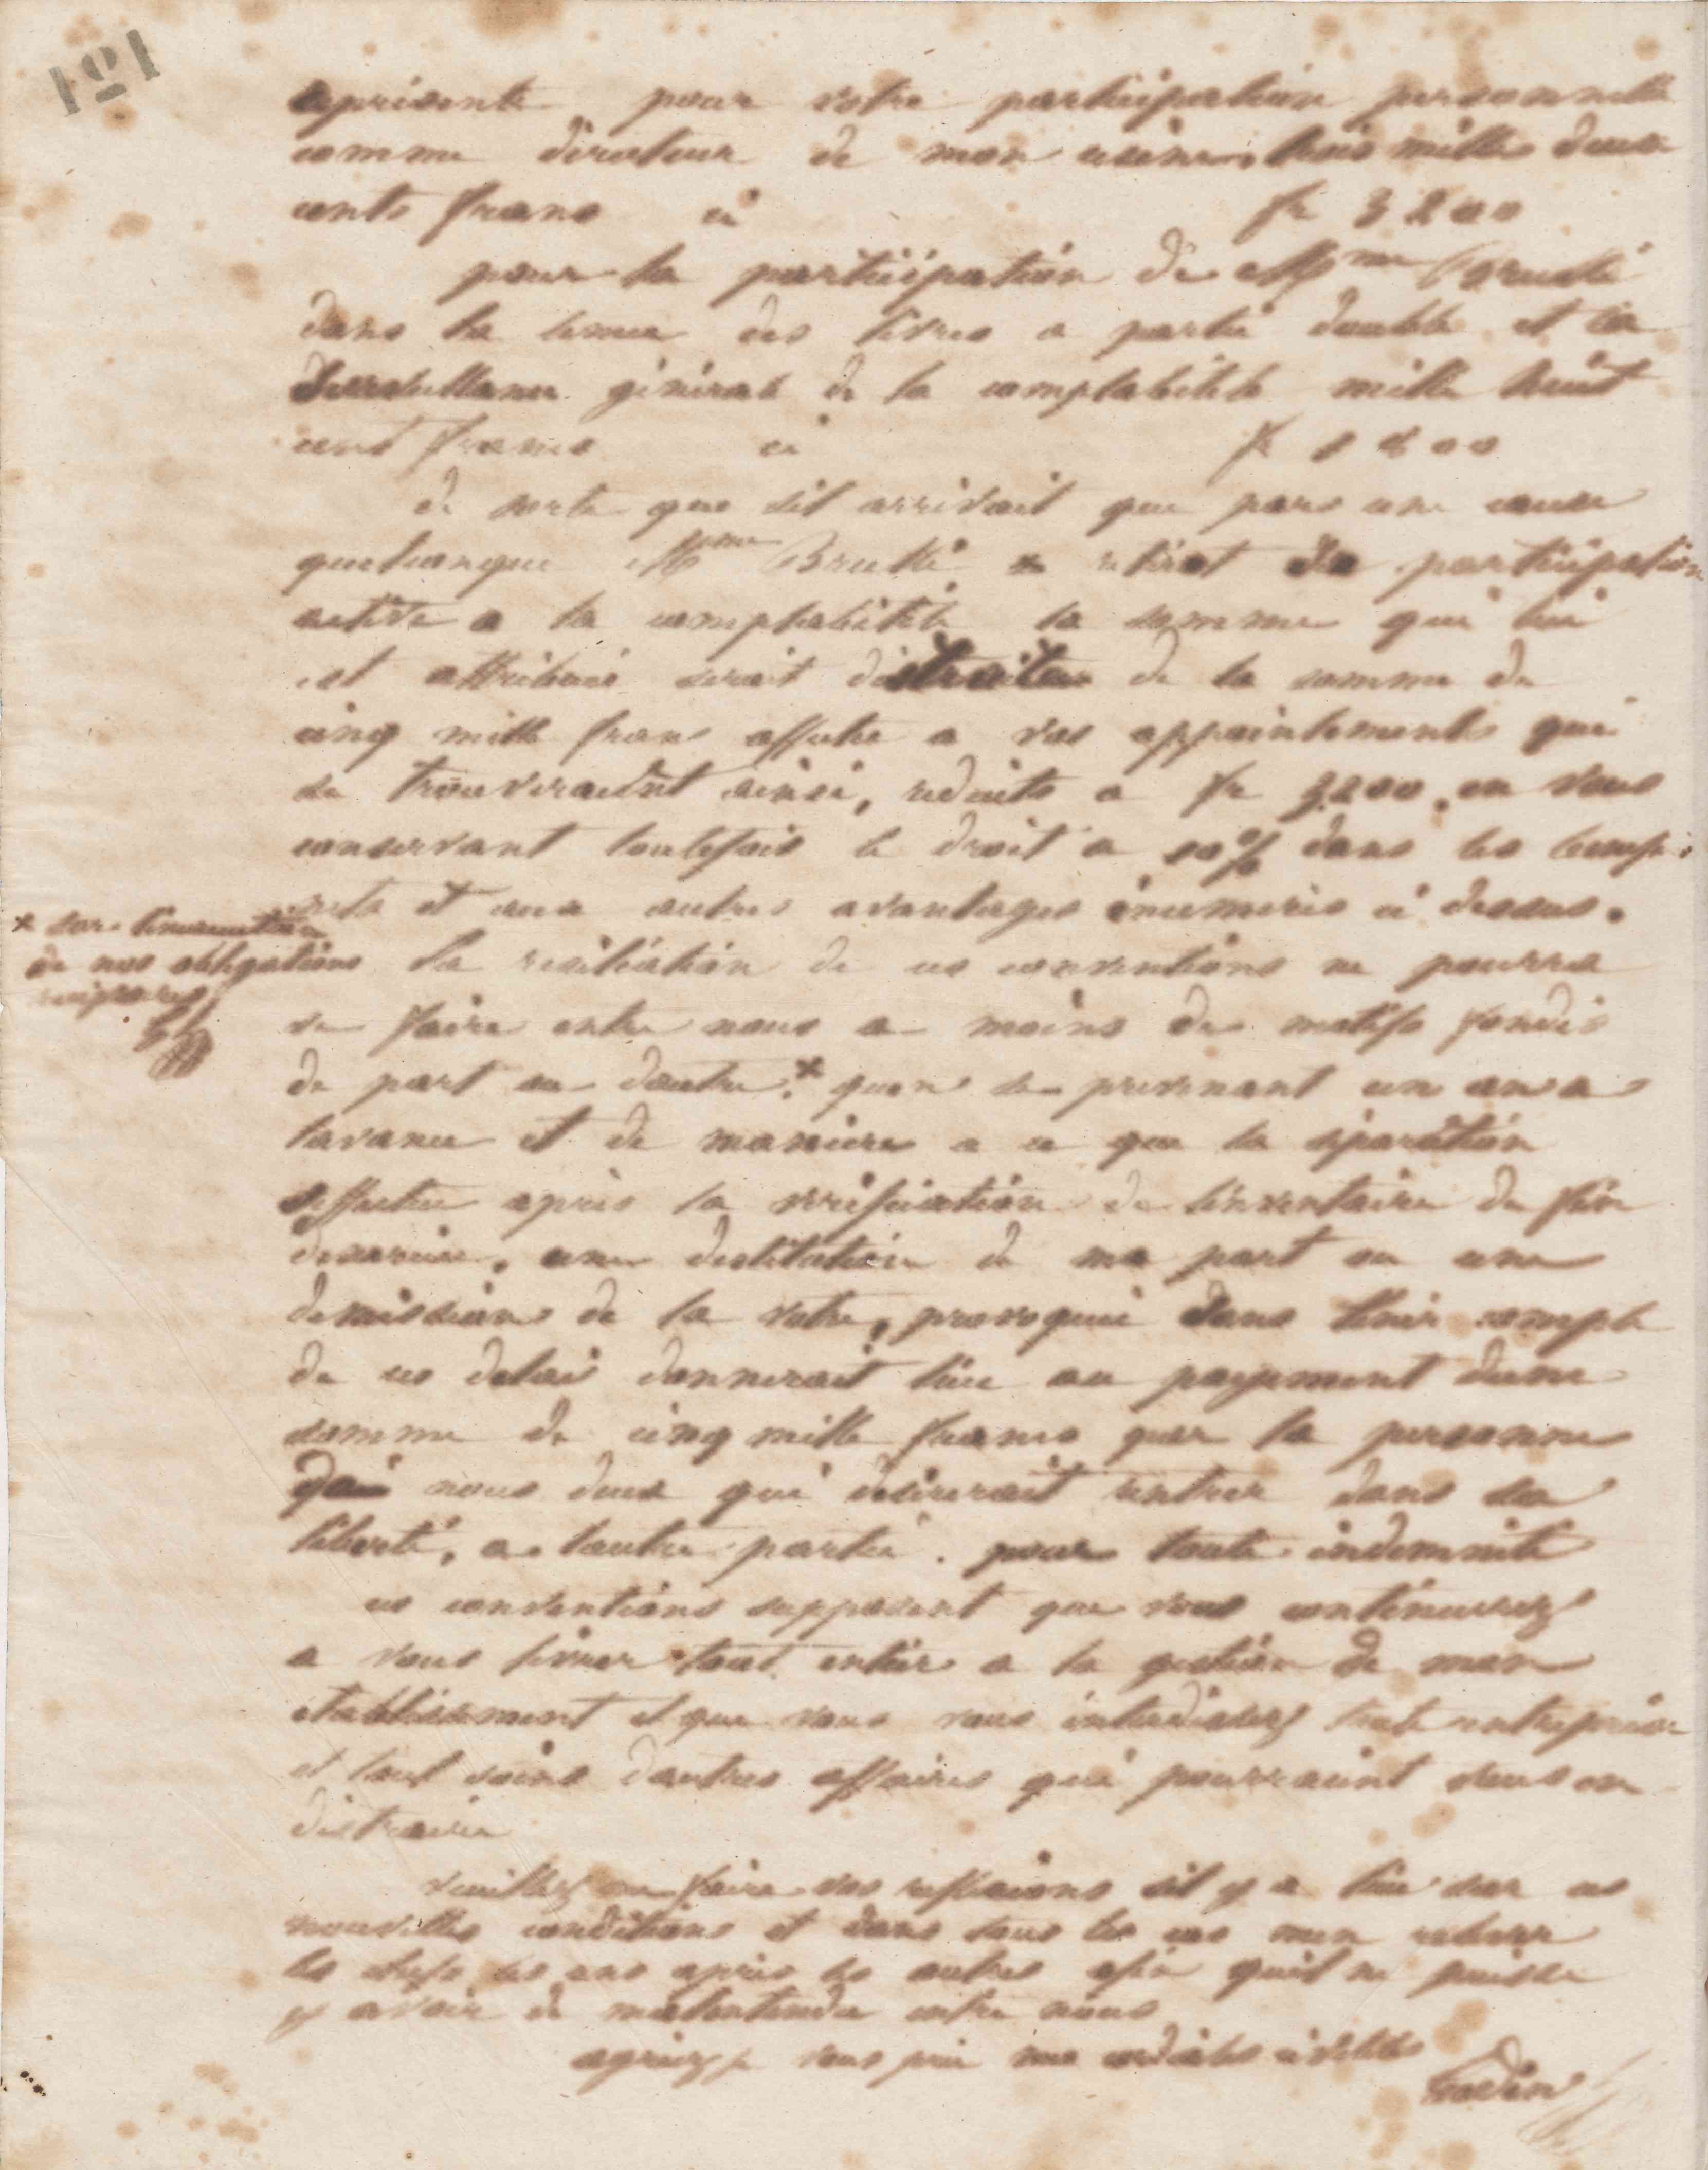 121
représente pour votre participation personnelle
comme directeur de mon usine, trois mille deux
cents francs ci fr 3200
pour la participation de Mme Brullé
dans la tenue des livres a partie double et la
surveillance général de la comptabilité mille huit
cent francs ci fr 1800
de sorte que sil arrivait que pars une cause
quelconque Mme Brullé retirat sa participation
active a la comptabilité la somme qui lui
est attribuée serait distraite de la somme de
cinq mille francs affectée a vos appointements qui
se trouveraient ainsi, reduits a fr 3200, en vous
conservant toutefois le droit a 10% dans les
et aux autres avantages énumérés ci dessus.
* sur
de nos obligations
reciproques
La resiliation de ces conventions ne pourra
se faire entre nous a moins de motifs fondés
de part ou dautre,* quen se prevenant un an a
lavance et de maniere a ce que la séparation
seffectue après la vérification de linventaire de fin
dexercice, une destitution de ma part ou une
demission de la votre, provoquée sans tenir compte
de ces delais donnerait lieu au payement dune
somme de cinq mille francs par la personne
de nous deux qui désirerait rentrer dans sa
liberté, a lautre partie. pour toute indemnité
ces conventions supposent que vous continuerez
a vous livrer tout entier a la gestion de mon
établissement et que vous vous interdisez toute entreprise
et tout soins dautres affaires qui pourraient vous en
distraire
veuillez me faire vos reflexions sil y a lieu sur ces
nouvelles conditions et dans tous les cas men relever
les chefs les uns après les autres afin quil ne puisse
y avoir de malentendu entre nous
agréez je vous prie mes cordiales civilités
Godin